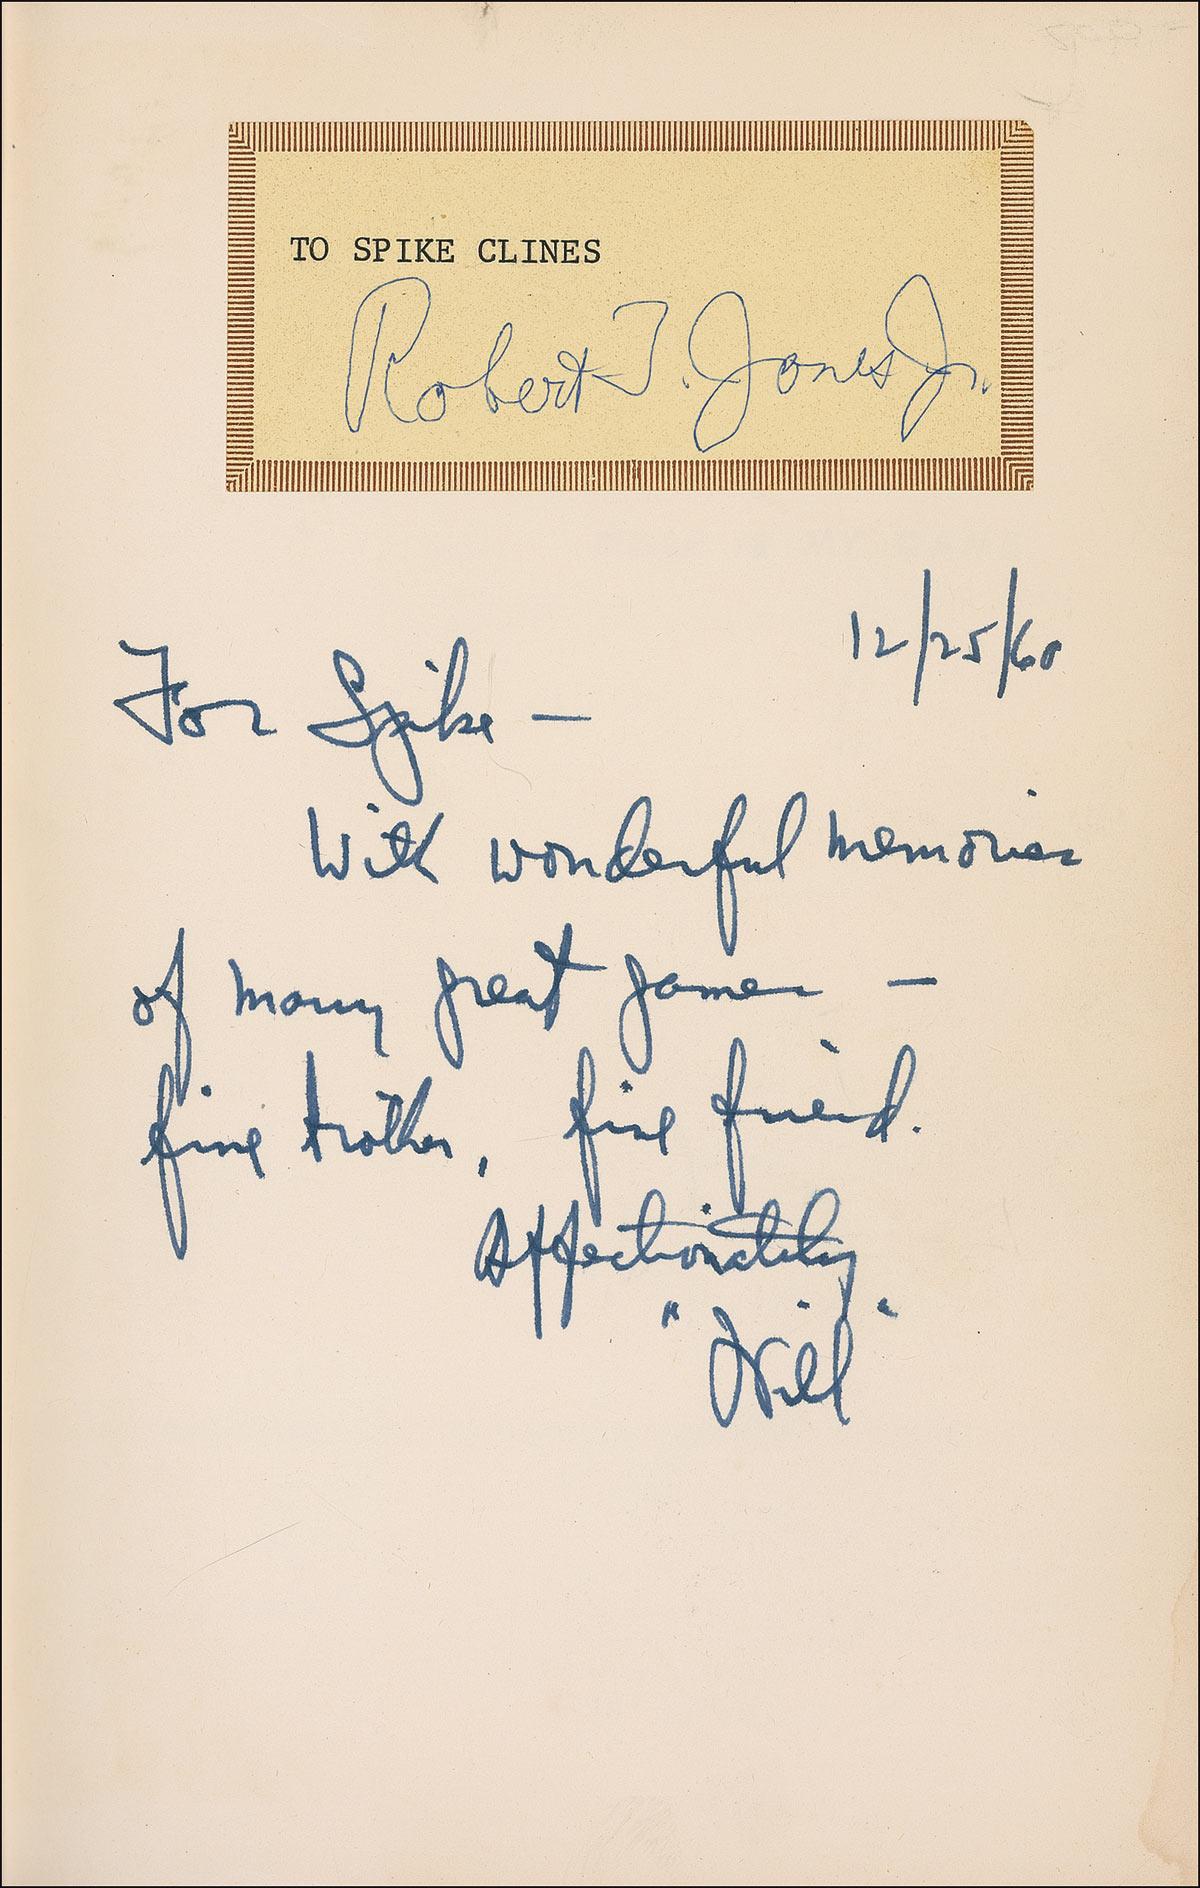 TO SPIKE CLINES
Robert T. Jones Jr.
12/25/60
For Spike —
With wonderful memories
of many great games —
fine brother, fine friend.
Affectionately
"Will"